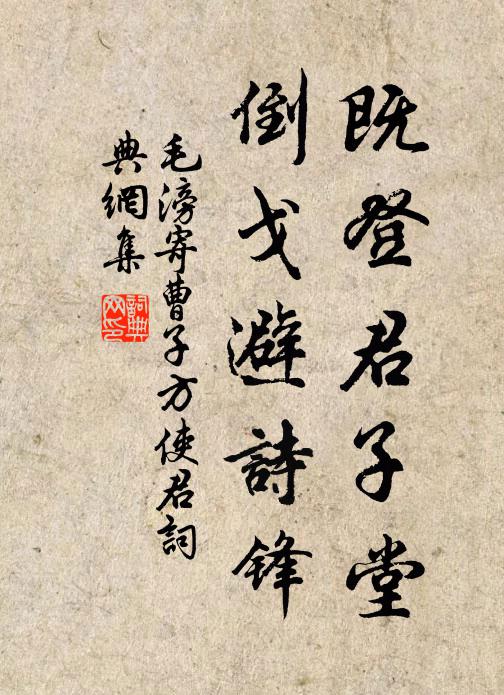 既登君子堂
倒戈避詩鋒
毛滂寄曹子方使君詞
典網集
詞典网印